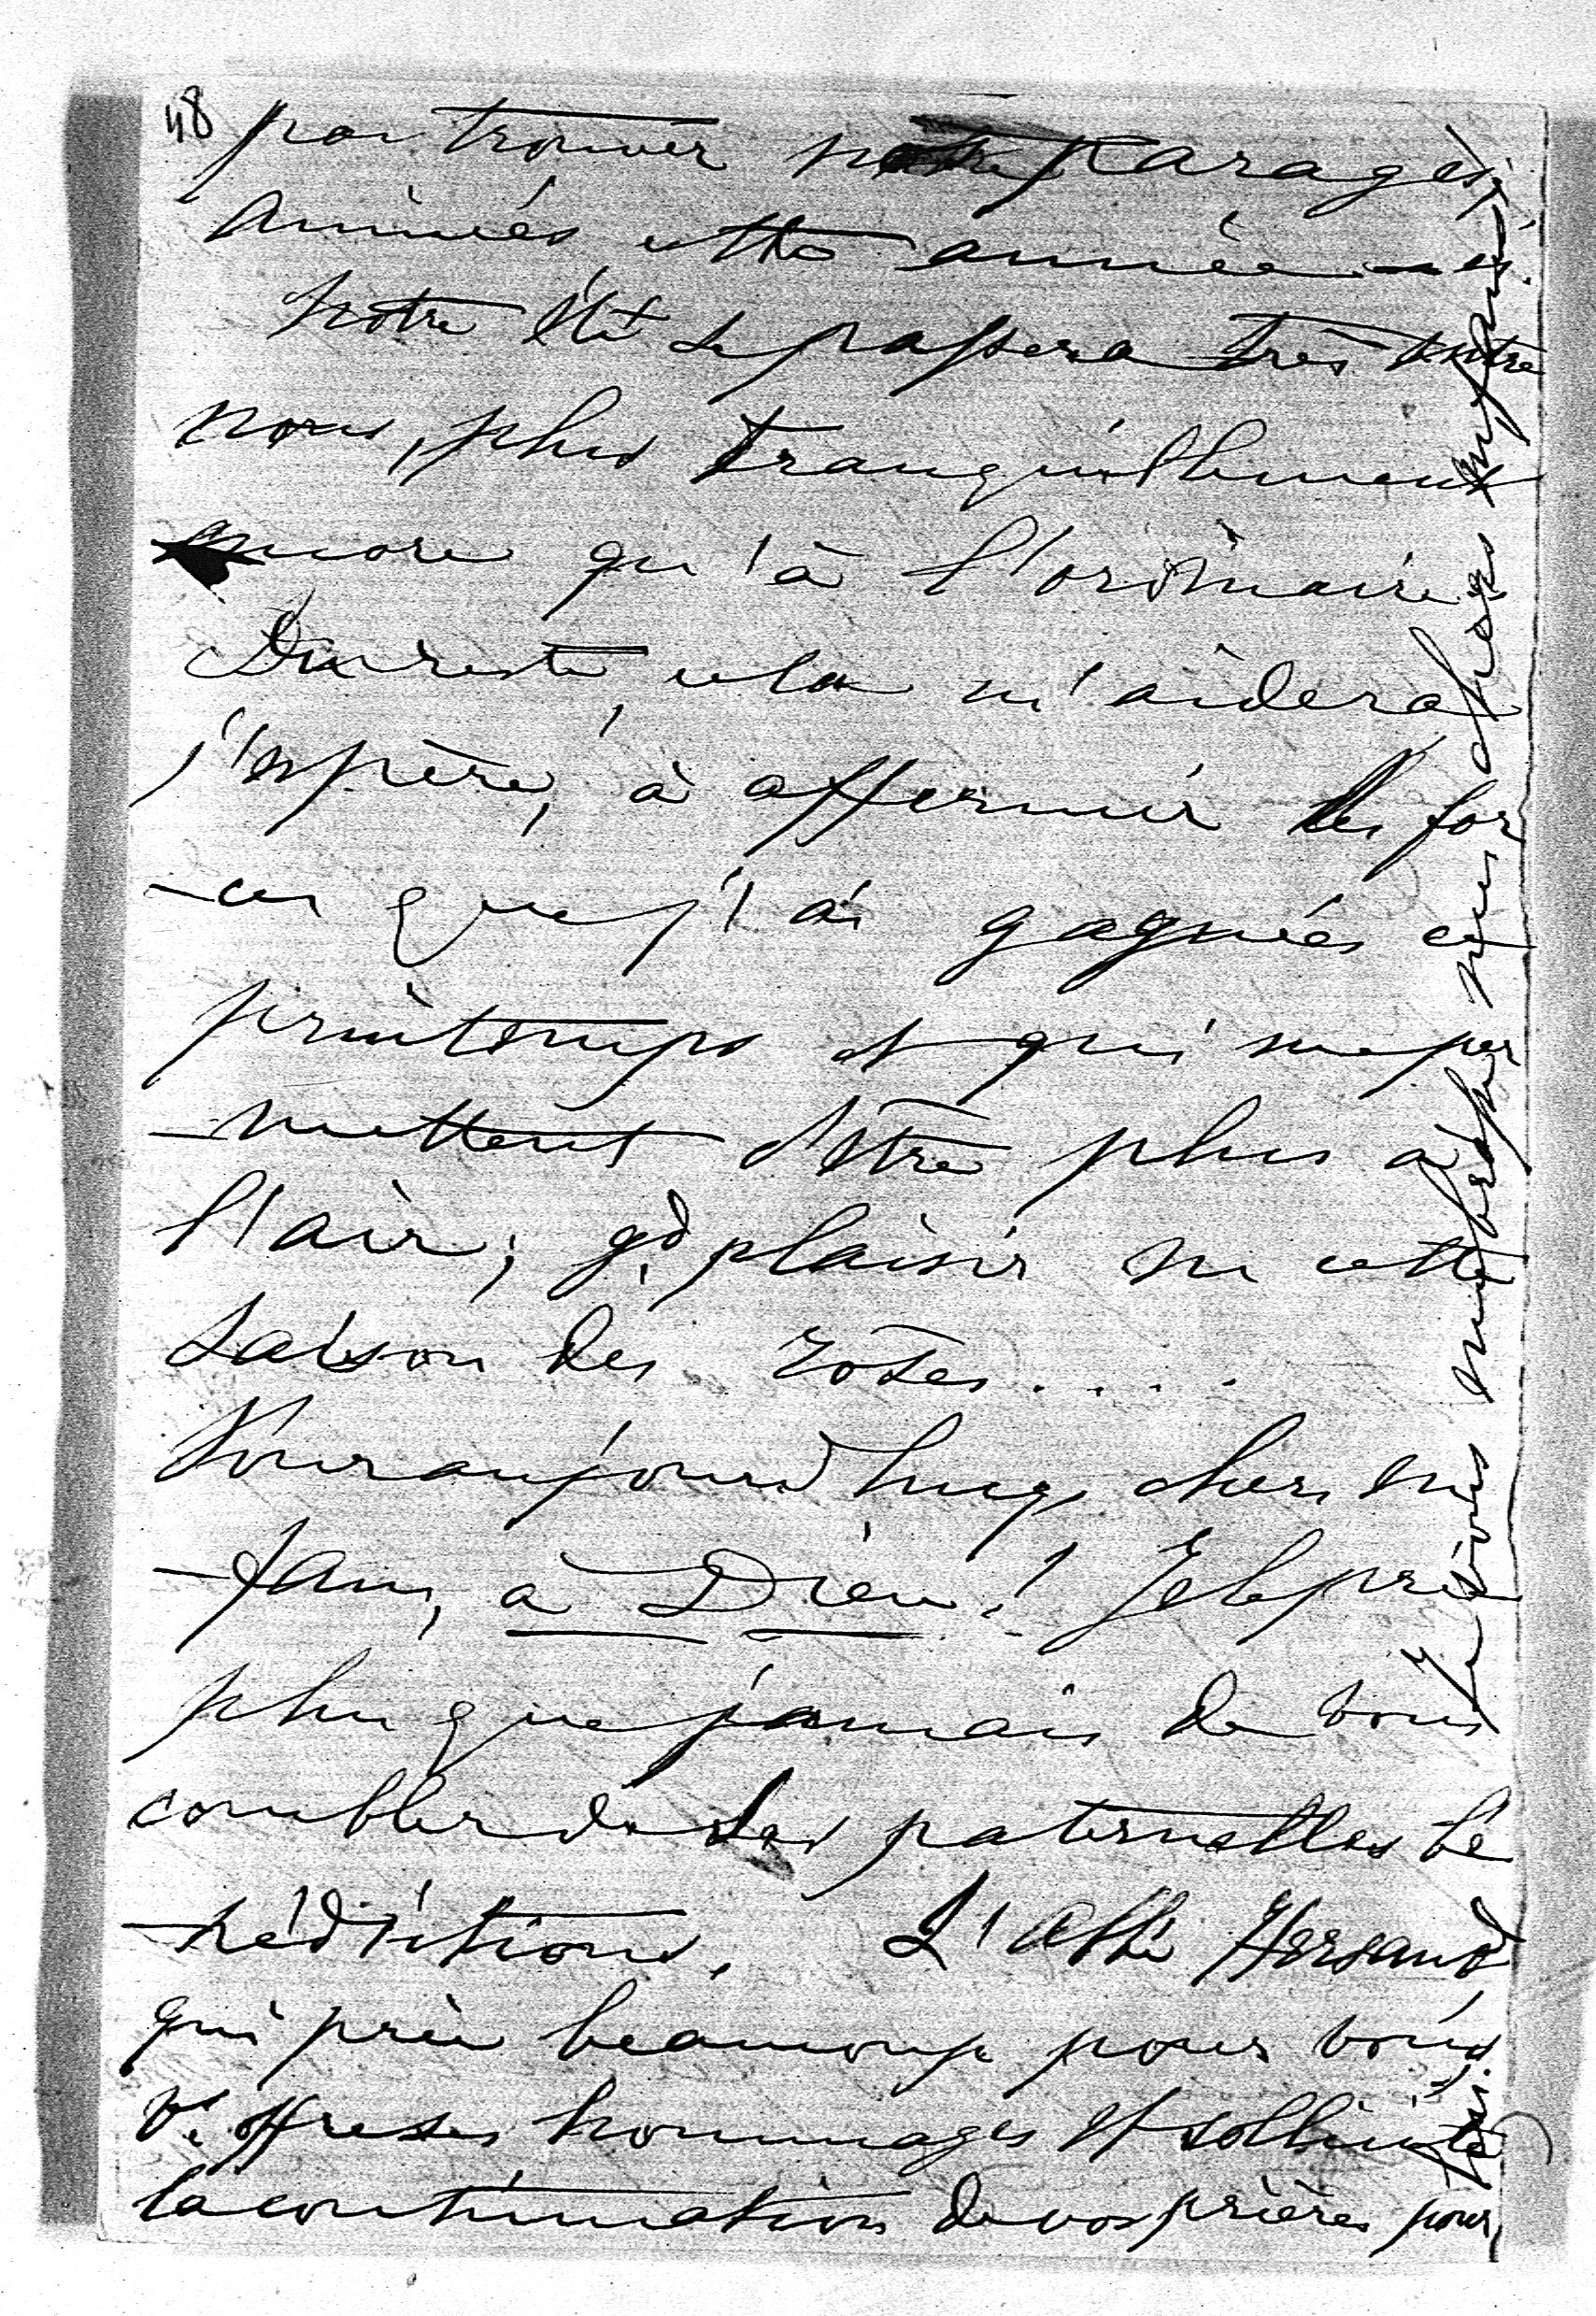 48
pou trouver notre Parage
animés cette année
Notre Été se passera très entre
nous, plus tranquillement
encore qu'à l'ordinaire
Du reste, cela m'aidera
j'espère, à affermir les for
-ces que j'ai gagnées ce
printemps et qui me per
-mettent d'être plus à
l'air; gd plaisir en cette
saison des roses....
Pour aujourd'hui, chers en
-fans, à Dieu! Je le prie
plus que jamais de vous
combler de Ses paternelles bé
-nédictions. L'abbé Hersand
qui prie beaucoup pour vous
vs offre ses hommages et sollicite
la continuation de vos prières pour
lui.
Je vous embrasse mes chers enfans